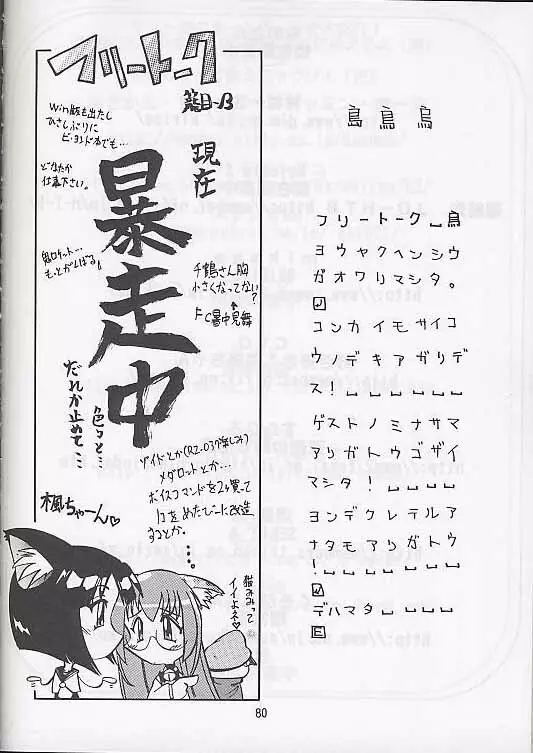 フリートーク
現在
暴走中
Win版も出たし
ひさしぶりに
ビ・ヨンド本でも…
どなたか
仕事下さい。
もっとがんばる!
千鶴さん胸
小さくなってない?
FC暑中見舞
色々と…
だれか止めて…
ゾイドとか(RZ-037楽しみ)
メダロットとか…
ボイスコマンドを2ヶ買って
するとか。
…。
楓ちゃーん♡
猫みみって
イイよネ♡
鳥 鳥 鳥
フリートーク␣鳥
ヨウヤクヘンシウ
ガオワリマシタ。
コンカイモサイコ
ウノデキアガリデ
ス!␣␣␣␣␣␣
ゲストノミナサマ
アリガトウゴザイ
マシタ!␣␣␣␣
ヨンデクレテルア
ナタモアリガトウ
!␣␣␣␣␣␣␣
デハマタ␣␣␣␣
80